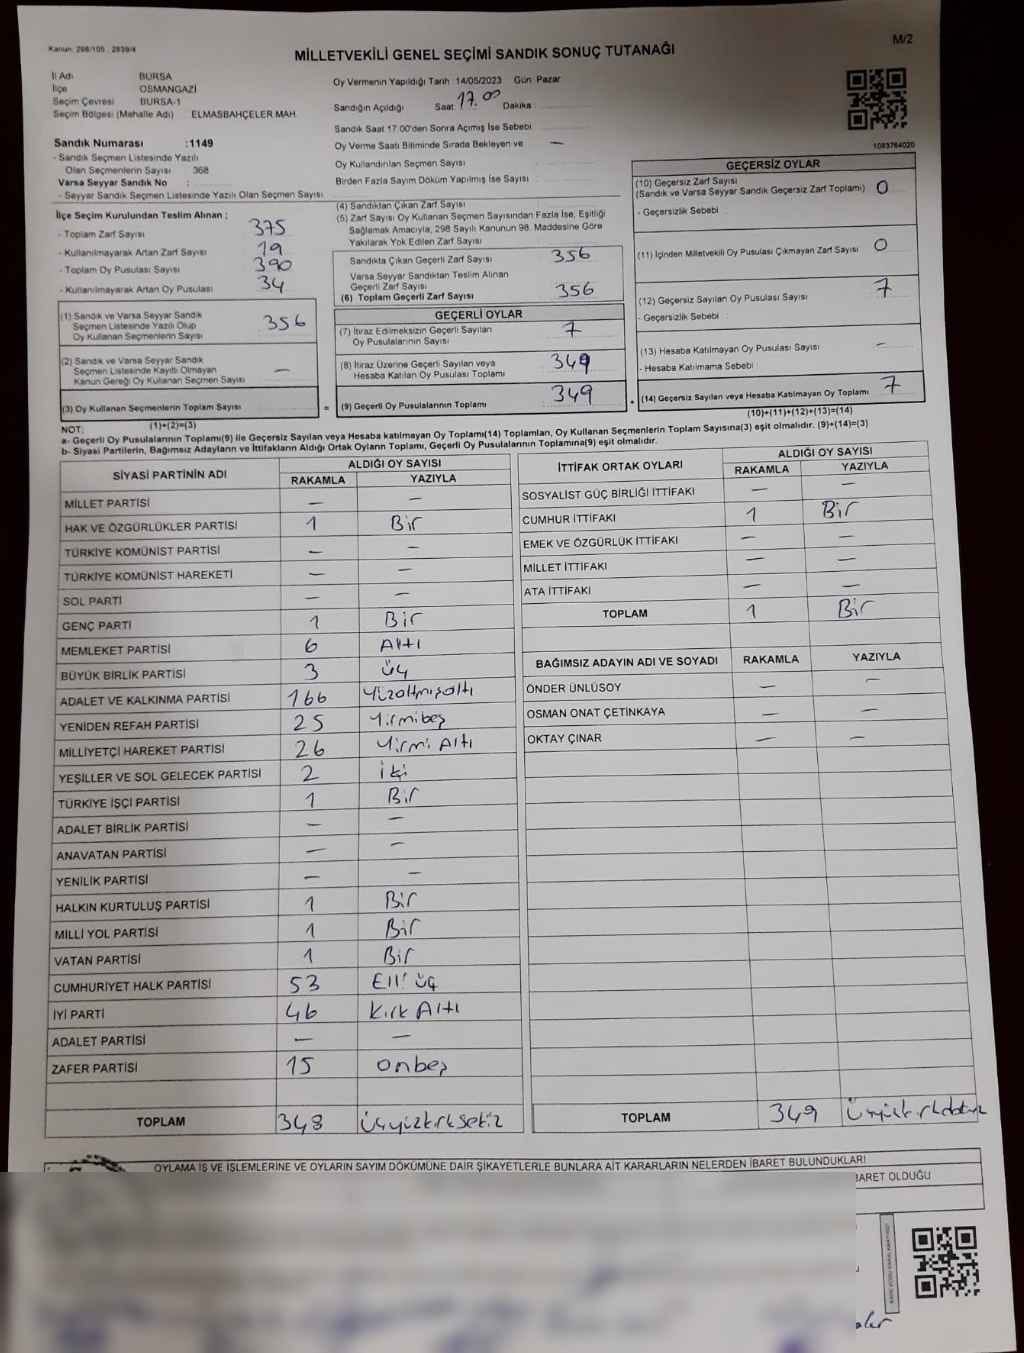 Kanun: 298/105 , 2839/4
M/2
MİLLETVEKİLİ GENEL SEÇİMİ SANDIK SONUÇ TUTANAĞI
İl Adı BURSA
İlçe OSMANGAZİ
Seçim Çevresi BURSA-1
Seçim Bölgesi (Mahalle Adı) ELMASBAHÇELER MAH.
Sandık Numarası :1149
- Sandık Seçmen Listesinde Yazılı
Olan Seçmenlerin Sayısı 368
Varsa Seyyar Sandık No :
- Seyyar Sandık Seçmen Listesinde Yazılı Olan Seçmen Sayısı
Oy Vermenin Yapıldığı Tarih 14/05/2023 Gün Pazar
Sandığın Açıldığı Saat 17.00 Dakika
Sandık Saat 17.00'den Sonra Açımış İse Sebebi
Oy Verme Saati Bitiminde Sırada Bekleyen ve —
Oy Kullandırılan Seçmen Sayısı
Birden Fazla Sayım Döküm Yapılmış İse Sayısı
1083764020
İlçe Seçim Kurulundan Teslim Alınan ;
- Toplam Zarf Sayısı 375
- Kullanılmayarak Artan Zarf Sayısı 19
- Toplam Oy Pusulası Sayısı 390
- Kullanılmayarak Artan Oy Pusulası 34
(1) Sandık ve Varsa Seyyar Sandık
Seçmen Listesinde Yazılı Olup
Oy Kullanan Seçmenlerin Sayısı 356
(2) Sandık ve Varsa Seyyar Sandık
Seçmen Listesinde Kayıtlı Olmayan
Kanun Gereği Oy Kullanan Seçmen Sayısı —
(3) Oy Kullanan Seçmenlerin Toplam Sayısı
(1)+(2)=(3)
(4) Sandıktan Çıkan Zarf Sayısı
(5) Zarf Sayısı Oy Kullanan Seçmen Sayısından Fazla İse, Eşitliği
Sağlamak Amacıyla, 298 Sayılı Kanunun 98. Maddesine Göre
Yakılarak Yok Edilen Zarf Sayısı
Sandıkta Çıkan Geçerli Zarf Sayısı 356
Varsa Seyyar Sandıktan Teslim Alınan
Geçerli Zarf Sayısı
(6) Toplam Geçerli Zarf Sayısı 356
GEÇERLİ OYLAR
(7) İtiraz Edilmeksizin Geçerli Sayılan
Oy Pusulalarının Sayısı 7
(8) İtiraz Üzerine Geçerli Sayılan veya
Hesaba Katılan Oy Pusulası Toplamı 349
= (9) Geçerli Oy Pusulalarının Toplamı 349
GEÇERSİZ OYLAR
(10) Geçersiz Zarf Sayısı
(Sandık ve Varsa Seyyar Sandık Geçersiz Zarf Toplamı) 0
- Geçersizlik Sebebi :
(11) İçinden Milletvekili Oy Pusulası Çıkmayan Zarf Sayısı 0
(12) Geçersiz Sayılan Oy Pusulası Sayısı 7
- Geçersizlik Sebebi :
(13) Hesaba Katılmayan Oy Pusulası Sayısı —
- Hesaba Katılmama Sebebi
+ (14) Geçersiz Sayılan veya Hesaba Katılmayan Oy Toplamı 7
(10)+(11)+(12)+(13)=(14)
NOT:
a- Geçerli Oy Pusulalarının Toplamı(9) ile Geçersiz Sayılan veya Hesaba katılmayan Oy Toplamı(14) Toplamları, Oy Kullanan Seçmenlerin Toplam Sayısına(3) eşit olmalıdır. (9)+(14)=(3)
b- Siyasi Partilerin, Bağımsız Adayların ve İttifakların Aldığı Ortak Oyların Toplamı, Geçerli Oy Pusulalarının Toplamına(9) eşit olmalıdır.
SİYASİ PARTİNİN ADI ALDIĞI OY SAYISI
RAKAMLA YAZIYLA
MİLLET PARTİSİ — —
HAK VE ÖZGÜRLÜKLER PARTİSİ 1 Bir
TÜRKİYE KOMÜNİST PARTİSİ — —
TÜRKİYE KOMÜNİST HAREKETİ — —
SOL PARTİ — —
GENÇ PARTİ 1 Bir
MEMLEKET PARTİSİ 6 Altı
BÜYÜK BİRLİK PARTİSİ 3 üç
ADALET VE KALKINMA PARTİSİ 166 Yüzatmışaltı
YENİDEN REFAH PARTİSİ 25 Yirmibeş
MİLLİYETÇİ HAREKET PARTİSİ 26 Yirmi Altı
YEŞİLLER VE SOL GELECEK PARTİSİ 2 iki
TÜRKİYE İŞÇİ PARTİSİ 1 Bir
ADALET BİRLİK PARTİSİ — —
ANAVATAN PARTİSİ — —
YENİLİK PARTİSİ — —
HALKIN KURTULUŞ PARTİSİ 1 Bir
MİLLİ YOL PARTİSİ 1 Bir
VATAN PARTİSİ 1 Bir
CUMHURİYET HALK PARTİSİ 53 Elli üç
İYİ PARTİ 46 Kırk Altı
ADALET PARTİSİ — —
ZAFER PARTİSİ 15 onbeş
TOPLAM 348 Üçyüzkırksekiz
İTTİFAK ORTAK OYLARI ALDIĞI OY SAYISI
RAKAMLA YAZIYLA
SOSYALİST GÜÇ BİRLİĞİ İTTİFAKI — —
CUMHUR İTTİFAKI 1 Bir
EMEK VE ÖZGÜRLÜK İTTİFAKI — —
MİLLET İTTİFAKI — —
ATA İTTİFAKI — —
TOPLAM 1 Bir
BAĞIMSIZ ADAYIN ADI VE SOYADI RAKAMLA YAZIYLA
ÖNDER ÜNLÜSOY — —
OSMAN ONAT ÇETİNKAYA — —
OKTAY ÇINAR — —
TOPLAM 349 Üçyüzkırkdokuz
OYLAMA İŞ VE İŞLEMLERİNE VE OYLARIN SAYIM DÖKÜMÜNE DAİR ŞİKAYETLERLE BUNLARA AİT KARARLARIN NELERDEN İBARET BULUNDUKLARI
BARET OLDUĞU